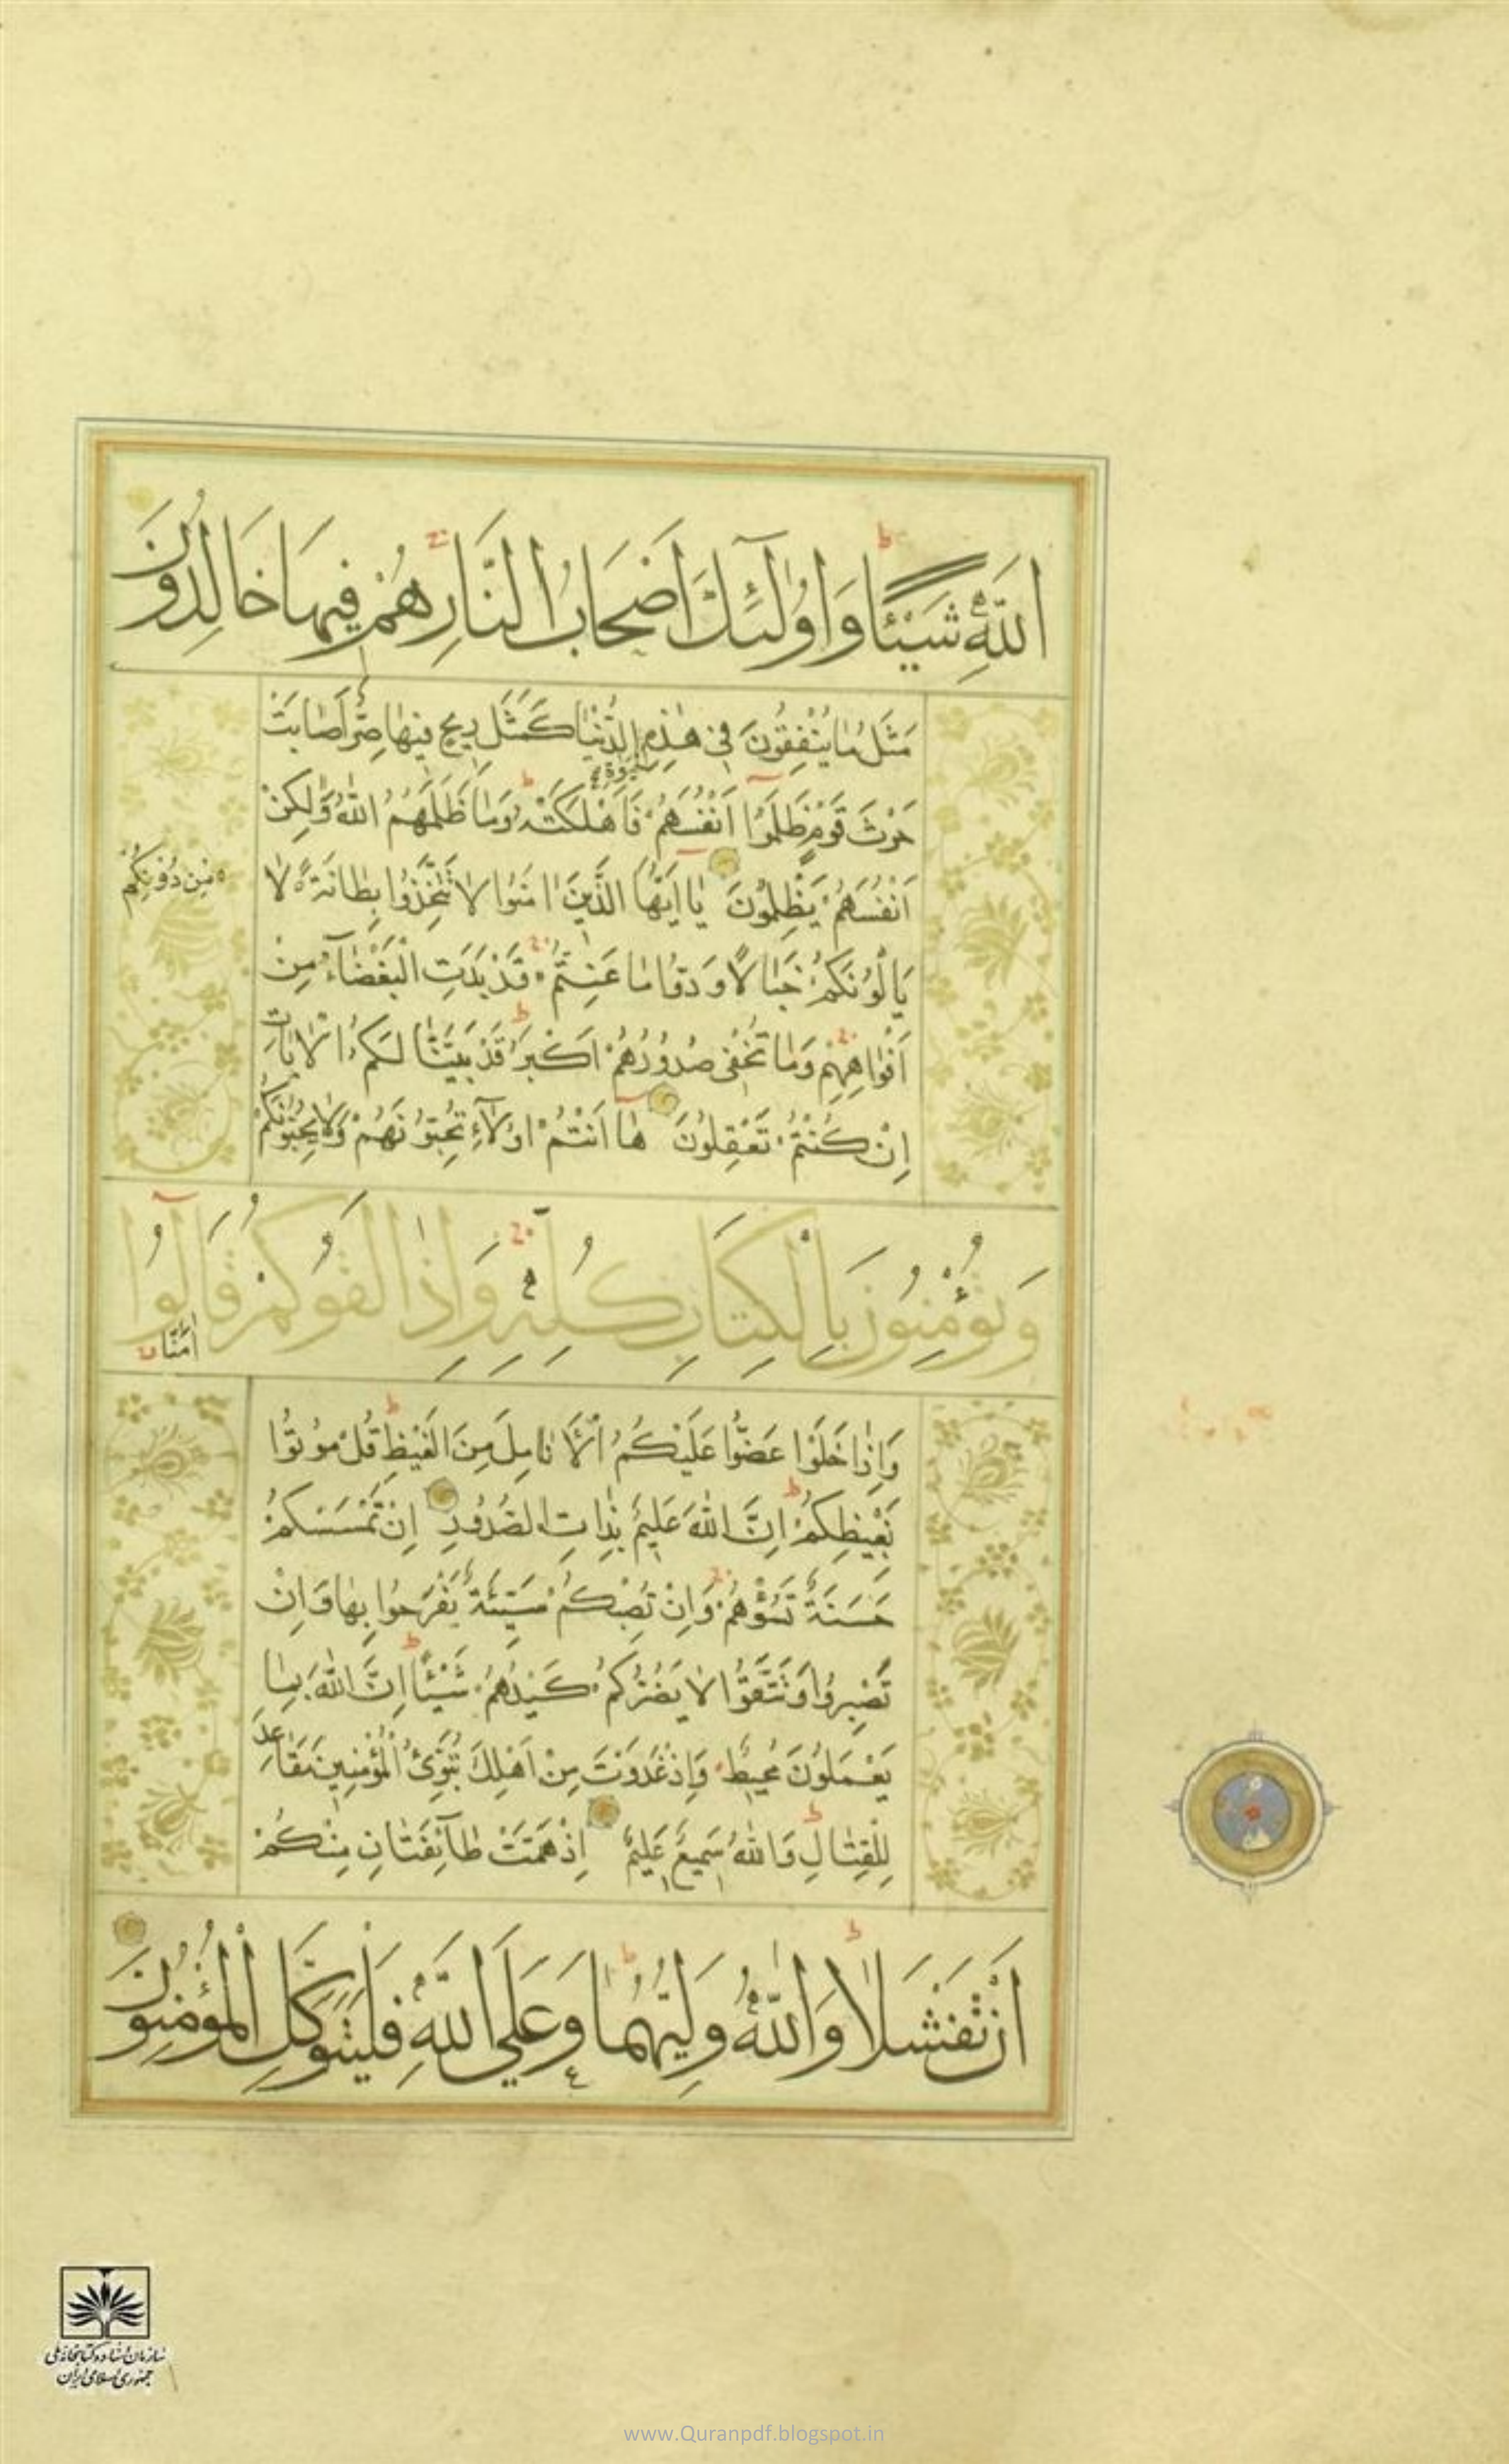 اللَّهِ شَيْئًا وَاُولٰٓئِكَ اَصْحَابُ النَّارِ هُمْ فِيهَا خَالِدُونَ
مَثَلُ مَا يُنْفِقُونَ فِى هٰذِهِ الدُّنْيَا كَمَثَلِ رِيحٍ فِيهَا صِرٌّ اَصَابَتْ
الْحَيٰوةِ
حَرْثَ قَوْمٍ ظَلَمُوٓا اَنْفُسَهُمْ فَاَهْلَكَتْهُ وَمَا ظَلَمَهُمُ اللّٰهُ وَلٰكِنْ
اَنْفُسَهُمْ يَظْلِمُونَ يٰٓا اَيُّهَا الَّذِينَ اٰمَنُوا لَا تَتَّخِذُوا بِطَانَةً لَا
مِنْ دُونِكُمْ
يَاْلُونَكُمْ خَبَالًا وَدُّوا مَا عَنِتُّمْ قَدْ بَدَتِ الْبَغْضَآءُ مِنْ
اَفْوَاهِهِمْ وَمَا تُخْفِى صُدُورُهُمْ اَكْبَرُ قَدْ بَيَّنَّا لَكُمُ الْاٰيَاتِ
اِنْ كُنْتُمْ تَعْقِلُونَ هَٓا اَنْتُمْ اُولَآءِ تُحِبُّونَهُمْ وَلَا يُحِبُّونَكُمْ
وَتُؤْمِنُونَ بِالْكِتَابِ كُلِّهِ وَاِذَا لَقُوكُمْ قَالُوٓا
اٰمَنَّا
وَاِذَا خَلَوْا عَضُّوا عَلَيْكُمُ الْاَنَامِلَ مِنَ الْغَيْظِ قُلْ مُوتُوا
بِغَيْظِكُمْ اِنَّ اللّٰهَ عَلِيمٌ بِذَاتِ الصُّدُورِ اِنْ تَمْسَسْكُمْ
حَسَنَةٌ تَسُؤْهُمْ وَاِنْ تُصِبْكُمْ سَيِّئَةٌ يَفْرَحُوا بِهَا وَاِنْ
تَصْبِرُوا وَتَتَّقُوا لَا يَضُرُّكُمْ كَيْدُهُمْ شَيْئًا اِنَّ اللّٰهَ بِمَا
يَعْمَلُونَ مُحِيطٌ وَاِذْ غَدَوْتَ مِنْ اَهْلِكَ تُبَوِّئُ الْمُؤْمِنِينَ مَقَاعِدَ
لِلْقِتَالِ وَاللّٰهُ سَمِيعٌ عَلِيمٌ اِذْ هَمَّتْ طَآئِفَتَانِ مِنْكُمْ
اَنْ تَفْشَلَا وَاللّٰهُ وَلِيُّهُمَا وَعَلَى اللّٰهِ فَلْيَتَوَكَّلِ الْمُؤْمِنُونَ
سازمان اسناد و کتابخانه ملی
جمهوری اسلامی ایران
www.Quranpdf.blogspot.in